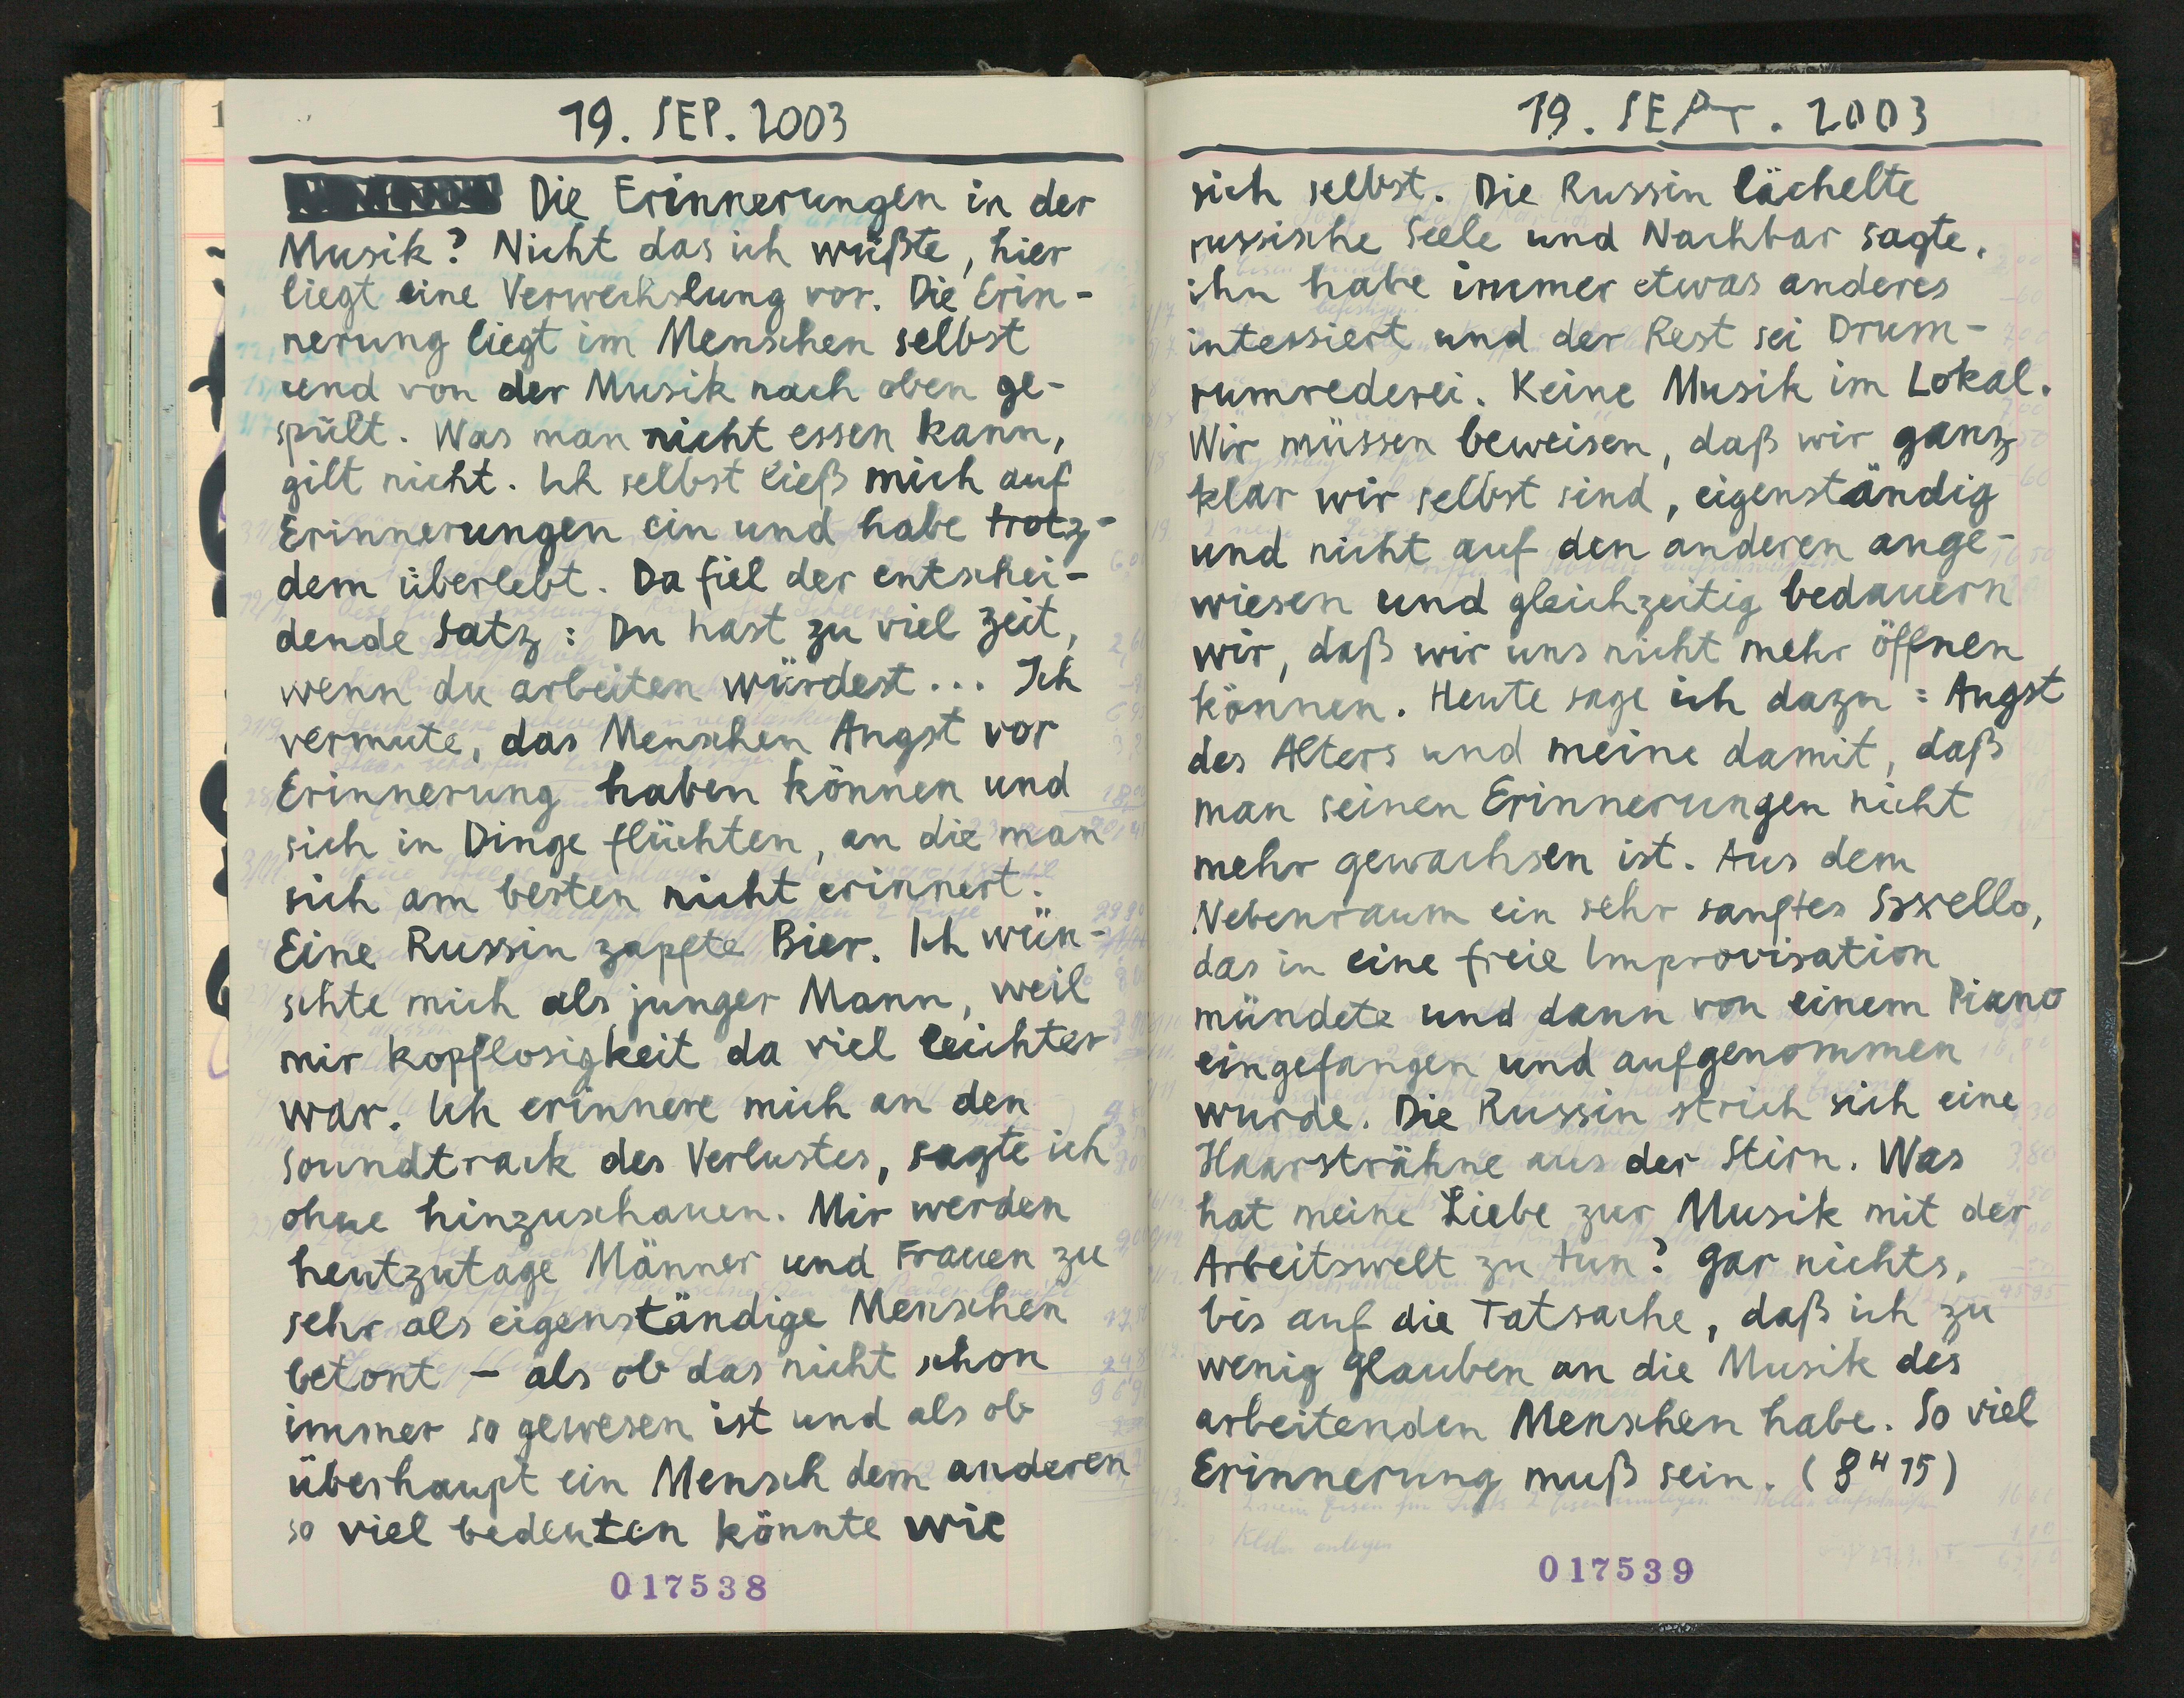 19. SEP. 2003
Die Erinnerungen in der
Musik? Nicht das ich wüßte, hier
liegt eine Verwechslung vor. Die Erin-
nerung liegt im Menschen selbst
und von der Musik nach oben ge-
spült. Was man nicht essen kann,
gilt nicht. Ich selbst ließ mich auf
Erinnerungen ein und habe trotz-
dem überlebt. Da fiel der entschei-
dende Satz: Du hast zu viel Zeit,
wenn du arbeiten würdest... Ich
vermute, das Menschen Angst vor
Erinnerung haben können und
sich in Dinge flüchten, an die man
sich am besten nicht erinnert.
Eine Russin zapfte Bier. Ich wün-
schte mich als junger Mann, weil
mir kopflosigkeit da viel leichter
war. Ich erinnere mich an den
Soundtrack des Verlustes, sagte ich
ohne hinzuschauen. Mir werden
heutzutage Männer und Frauen zu
sehr als eigenständige Menschen
betont – als ob das nicht schon
immer so gewesen ist und als ob
überhaupt ein Mensch dem anderen
so viel bedeuten könnte wie
017538
19. SEPT. 2003
sich selbst. Die Russin lächelte
russische Seele und Nachbar sagte,
ihn habe immer etwas anderes
intessiert und der Rest sei Drum-
rumrederei. Keine Musik im Lokal.
Wir müssen beweisen, daß wir ganz
klar wir selbst sind, eigenständig
und nicht auf den anderen ange-
wiesen und gleichzeitig bedauern
wir, daß wir uns nicht mehr öffnen
können. Heute sage ich dazu: Angst
des Alters und meine damit, daß
man seinen Erinnerungen nicht
mehr gewachsen ist. Aus dem
Nebenraum ein sehr sanftes Saxello,
das in eine freie Improvisation
mündete und dann von einem Piano
eingefangen und aufgenommen
wurde. Die Russin strich sich eine
Haarsträhne aus der Stirn. Was
hat meine Liebe zur Musik mit der
Arbeitswelt zu tun? Gar nichts,
bis auf die Tatsache, daß ich zu
wenig Glauben an die Musik des
arbeitenden Menschen habe. So viel
Erinnerung muß sein. (8 H 15)
017539